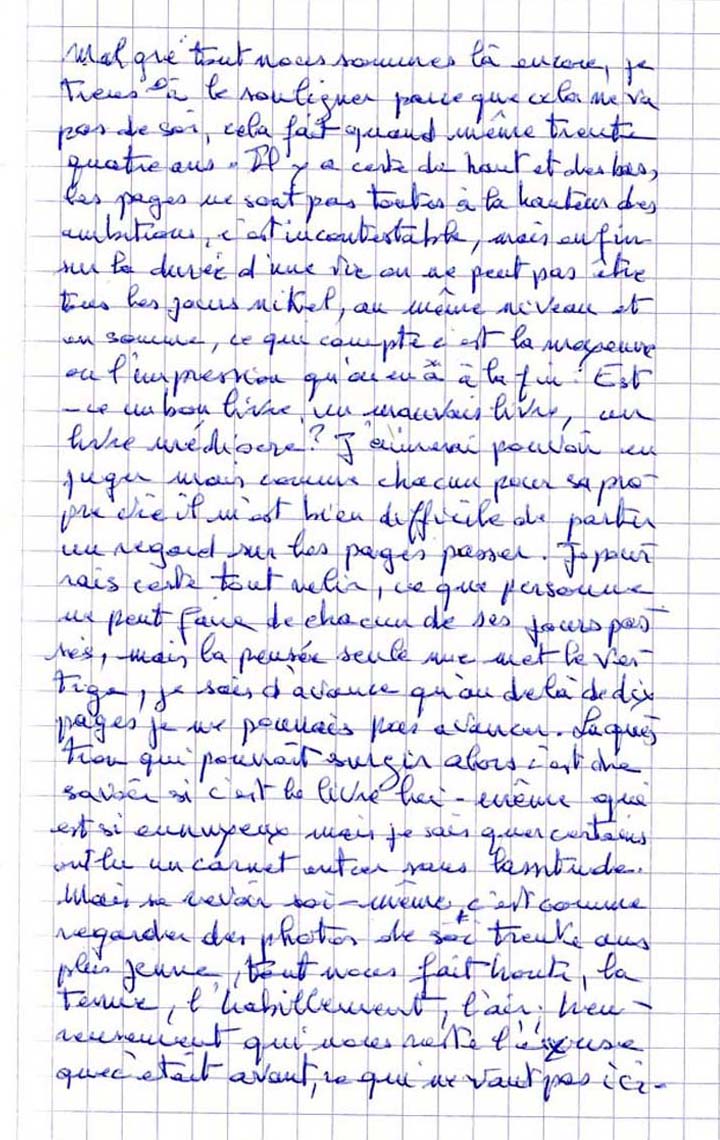 Malgré tout nous sommes là encore, je
tiens à le souligner parce que cela ne va
pas de soi, cela fait quand même trente
quatre ans. Il y a certe du haut et des bas,
les pages ne sont pas toutes à la hauteur des
ambitions, c'est incontestable, mais enfin
sur la durée d'une vie on ne peut pas être
tous les jours nikel, au même niveau et
en somme, ce qui compte c'est la moyenne
ou l'impression qu'on en a à la fin. Est
-ce un bon livre, un mauvais livre, un
livre médiocre? J'aimerai pouvoir en
juger mais comme chacun pour sa pro-
pre vie il m'est bien difficile de porter
un regard sur les pages passer. Je pour
rais certe tout relir, ce que personne
ne peut faire de chacun de ses jours pas
sés, mais la pensée seule me met le ver-
tige, je sais d'avance qu'au delà de dix
pages je ne pourrais pas avancer. La ques
tion qui pourrait surgir alors c'est de
savoir si c'est le livre lui-même qui
est si ennuyeux mais je sais que certains
ont lu un carnet entier sans lassitude.
Mais se revoir soi-même, c'est comme
regarder des photos de soi trente ans
plus jeune, tout nous fait honte, la
tenue, l'habillement, l'air; heu-
reusement qui nous reste l'excuse
que c'était avant, ce qui ne vaut pas ici-